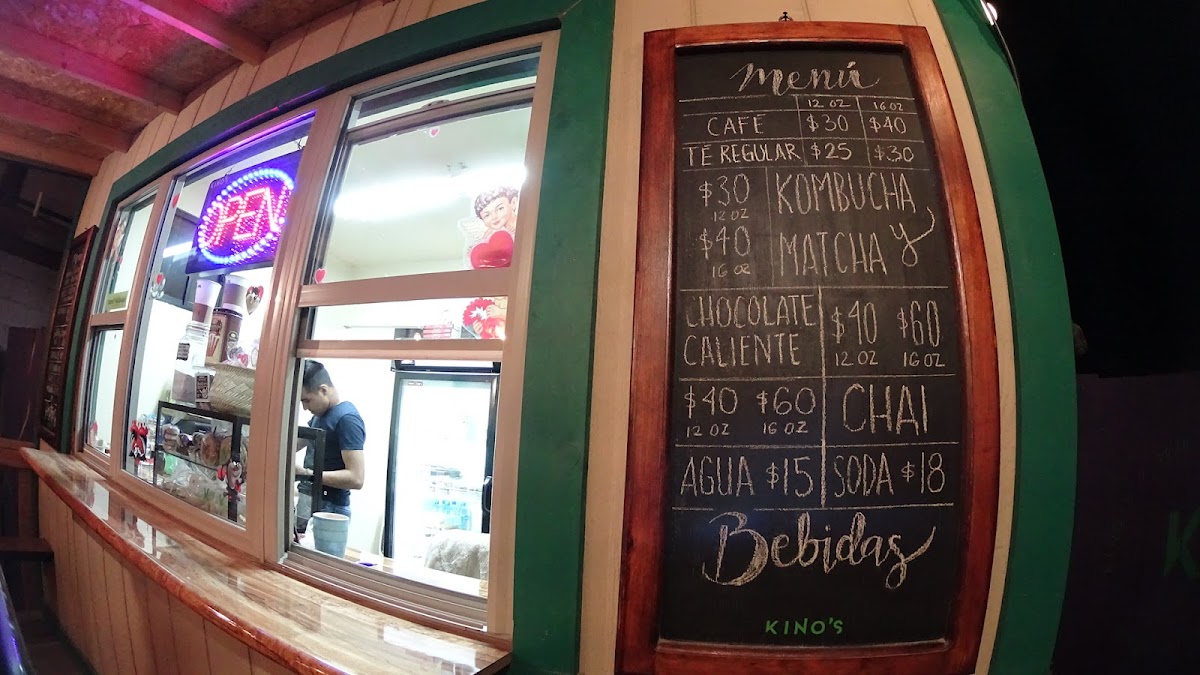 OPEN
Menú
12 OZ 16 OZ
CAFÉ $30 $40
TÉ REGULAR $25 $30
$30 KOMBUCHA
12 OZ
$40 Y
16 OZ MATCHA
CHOCOLATE $40 $60
CALIENTE 12 OZ 16 OZ
$40 $60 CHAI
12 OZ 16 OZ
AGUA $15 SODA $18
Bebidas
KINO'S